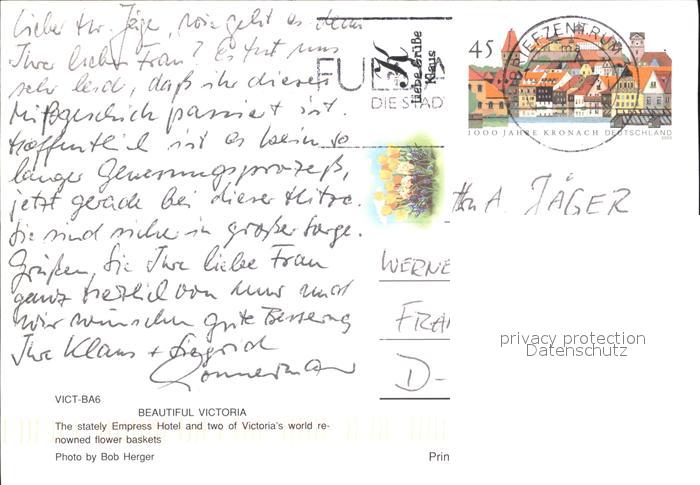 Lieber Hr. Jäger, wie geht es denn
Ihrer lieben Frau? Es tut uns
sehr leid, daß ihr dieses
Mißgeschick passiert ist.
Hoffentlich ist es kein so
langer Genesungsprozeß,
jetzt gerade bei dieser Hitze.
Sie sind sicher in großer Sorge.
Grüßen Sie Ihre liebe Frau
ganz herzlich von uns und
wir wünschen gute Besserung
Ihre Klaus + Siegrid
VICT-BA6
BEAUTIFUL VICTORIA
The stately Empress Hotel and two of Victoria's world re-
nowned flower baskets
Photo by Bob Herger
Prin
K
Liebe Grüße
Klaus
FUL A
DIE STAD
BRIEFZENTRUM
45
1000 JAHRE KRONACH DEUTSCHLAND
Hrn A. JÄGER
WERNE
FRA
D-
privacy protection
Datenschutz